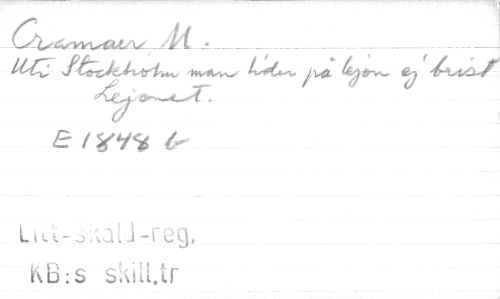 Cramaer, M.
Uti Stockholm man lider på lejon ej brist
Lejonet.
E 1848 b
Litt-skald-reg.
KB:s skill.tr